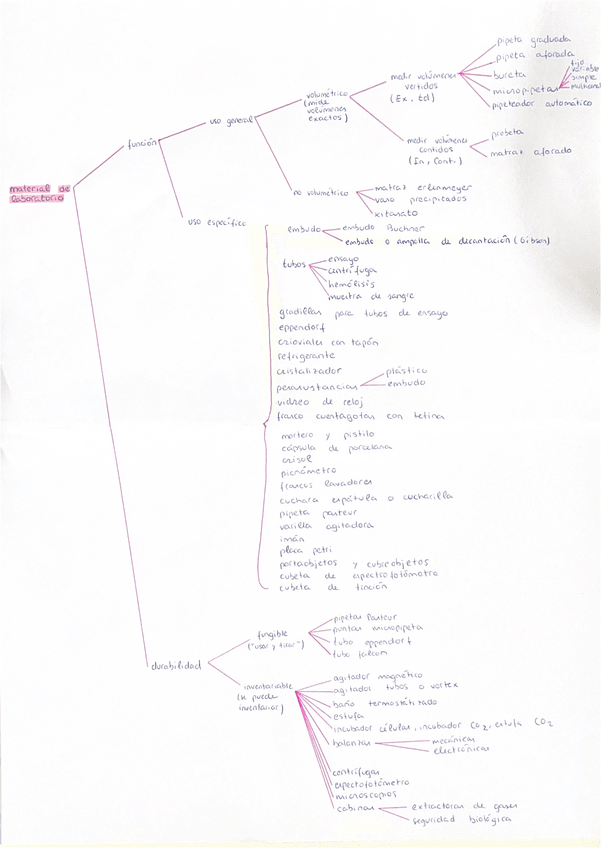 material de
laboratorio
función
uso general
volumétrico
(mide
volúmenes
exactos)
medir volúmenes
vertidos
(Ex, td)
pipeta graduada
pipeta aforada
bureta
micropipetas
fijo
variable
simple
multicanal
pipeteador automático
medir volúmenes
contidos
(In, Cont.)
probeta
matraz aforado
no volumétrico
matraz erlenmeyer
vaso precipitados
kitasato
uso específico
embudo
embudo Buchner
embudo o ampolla de decantación (Gibson)
tubos
ensayo
centrífuga
hemólisis
muestra de sangre
gradillas para tubos de ensayo
eppendorf
crioviales con tapón
refrigerante
cristalizador
pesasustancias
plástico
embudo
vidreo de reloj
frasco cuentagotas con tetina
mortero y pistilo
cápsula de porcelana
crisol
picnómetro
frascos lavadores
cuchara espátula o cucharilla
pipeta pasteur
varilla agitadora
imán
placa petri
portaobjetos y cubreobjetos
cubeta de espectrofotómetro
cubeta de tinción
durabilidad
fungible
("usar y tirar")
pipetas Pasteur
puntas micropipeta
tubo eppendorf
tubo falcon
inventariable
(se puede
inventariar)
agitador magnético
agitador tubos o vortex
baño termostatizado
estufa
incubador células, incubador CO2, estufa CO2
balanzas
mecánicas
electrónicas
centrífugas
espectofotómetro
microscopios
cabinas
extractoras de gases
seguridad biológica